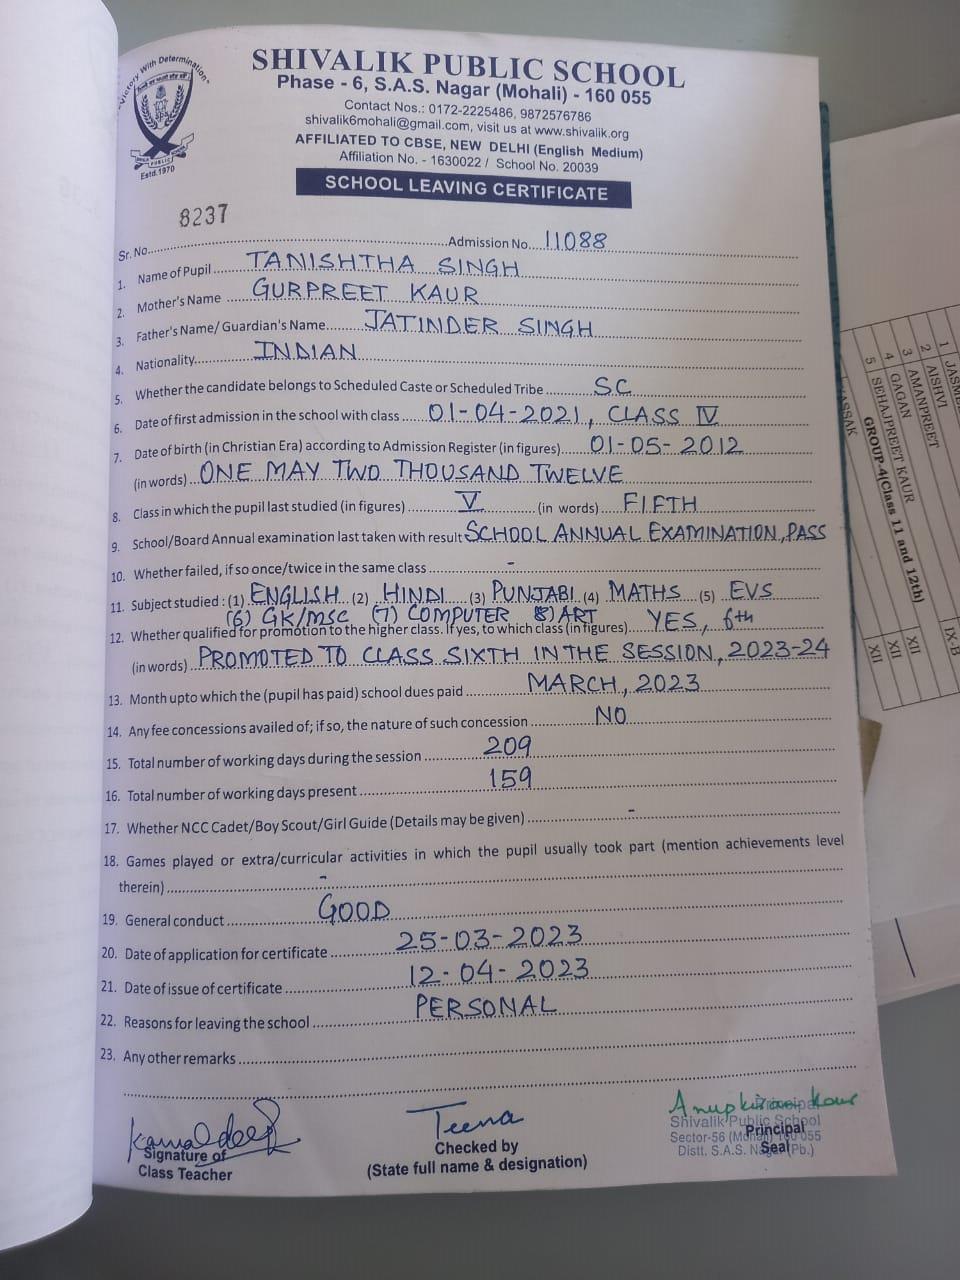 "Victory With Determination"
Estd.1970
SHIVALIK PUBLIC SCHOOL
Phase - 6, S.A.S. Nagar (Mohali) - 160 055
Contact Nos.: 0172-2225486, 9872576786
shivalik6mohali@gmail.com, visit us at www.shivalik.org
AFFILIATED TO CBSE, NEW DELHI (English Medium)
Affiliation No. - 1630022 / School No. 20039
SCHOOL LEAVING CERTIFICATE
8237
Sr. No. Admission No. 11088
1. Name of Pupil TANISHTHA SINGH
2. Mother's Name GURPREET KAUR
3. Father's Name/ Guardian's Name JATINDER SINGH
4. Nationality INDIAN
5. Whether the candidate belongs to Scheduled Caste or Scheduled Tribe SC
6. Date of first admission in the school with class 01-04-2021, CLASS IV
7. Date of birth (in Christian Era) according to Admission Register (in figures) 01-05-2012
(in words) ONE MAY TWO THOUSAND TWELVE
8. Class in which the pupil last studied (in figures) V (in words) FIFTH
9. School/Board Annual examination last taken with result SCHOOL ANNUAL EXAMINATION, PASS
10. Whether failed, if so once/twice in the same class -
11. Subject studied : (1) ENGLISH (2) HINDI (3) PUNJABI (4) MATHS (5) EVS
(6) GK/MSC (7) COMPUTER (8) ART
12. Whether qualified for promotion to the higher class. If yes, to which class (in figures) YES, 6th
(in words) PROMOTED TO CLASS SIXTH IN THE SESSION, 2023-24
13. Month upto which the (pupil has paid) school dues paid MARCH, 2023
14. Any fee concessions availed of; if so, the nature of such concession NO
15. Total number of working days during the session 209
16. Total number of working days present 159
17. Whether NCC Cadet/Boy Scout/Girl Guide (Details may be given) -
18. Games played or extra/curricular activities in which the pupil usually took part (mention achievements level
therein) -
19. General conduct GOOD
20. Date of application for certificate 25-03-2023
21. Date of issue of certificate 12-04-2023
22. Reasons for leaving the school PERSONAL
23. Any other remarks
Kamaldeep
Signature of
Class Teacher
Teena
Checked by
(State full name & designation)
Anupkiran Kaur
Principal
Shivalik Public School
Sector-56 (Mohali) 160 055
Distt. S.A.S. Nagar (Pb.)
Principal
Seal
1 JASME
2 AISHVI IX-B
3 AMANPREET
4 GAGAN XII
5 SEHAJPREET KAUR XII
GROUP-4(Class 11 and 12th)
XII